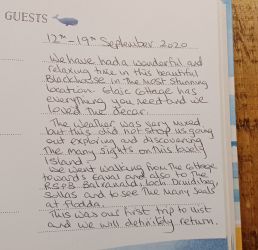 GUESTS
12TH - 19TH September 2020
We have had a wonderful and
relaxing time in this beautiful
Blackhouse in the most stunning
location. Cottage has
everything you need and we
loved the decor.
The weather was very mixed
but this did not stop us going
out exploring and discovering
the many sights on this lovely
Island.
We went walking from the cottage
towards and also to the
R.S.P.B. Balranald, Loch. Druidibeg,
and to see the many seals
at
This was our first trip to Uist
and we will definitely return.